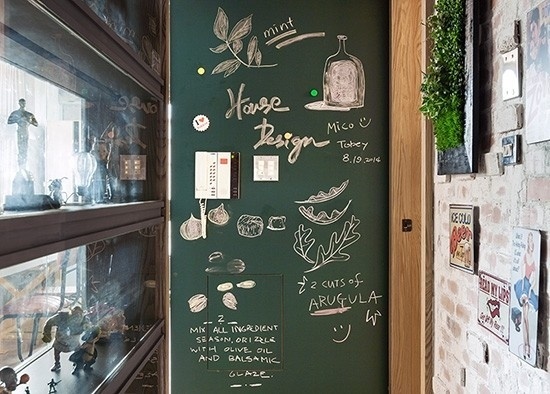 mint
House
Design
Mico
Tobey
8.19.2014
I
2 CUTS of
ARUGULA
2
MIX ALL INGREDIENT
SEASON, DRIZZLE
WITH OLIVE OIL
AND BALSAMIC
GLAZE.
ICE COLD
Beer
READ MY LIPS